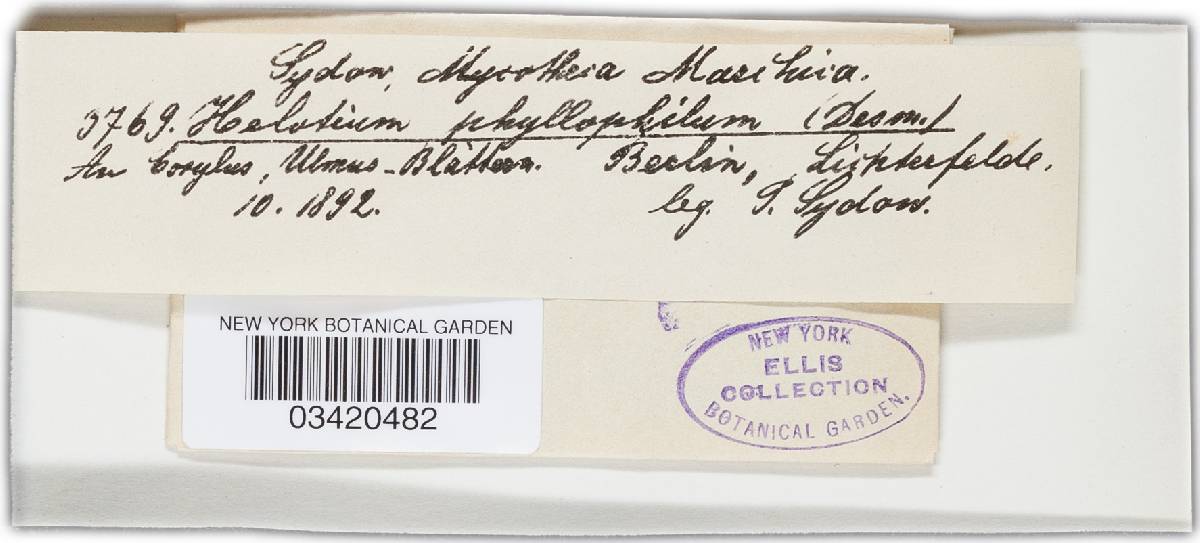 Sydow, Mycotheca Marchica.
3769. Helotium phyllophilum (Desm.)
An Corylus, Ulmus-Blättern. Berlin, Lichterfelde.
10. 1892. leg. P. Sydow.
NEW YORK BOTANICAL GARDEN
03420482
NEW YORK
ELLIS
COLLECTION
BOTANICAL GARDEN.